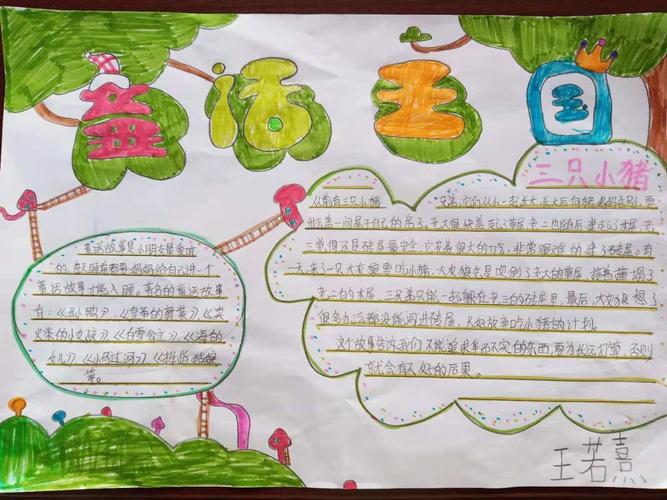 童话王国
童话故事是小朋友最爱听
的,每天睡前都要妈妈给自己讲一个
童话故事才能入睡。著名的童话故事
有:《丑小鸭》、《皇帝的新装》、《卖
火柴的小女孩》、《白雪公主》、《海的
女儿》、《小马过河》、《拇指姑娘
等。
三只小猪
从前有三只小猪
兄弟,它们从小一起长大
他去盖一间属于自己的房子。老大很快盖起了草屋,老二也随后建起了木屋,老
三觉得还是砖屋最安全,它花费很大的工夫,非常艰难的建了砖屋。有
一天,来了一只大灰狼要吃小猪,大灰狼先是吹倒了老大的草屋,接着撞塌了
老二的木屋,三兄弟只能一起躲在老三的砖屋里,最后,大灰狼想了
很多办法都没能闯进砖屋,只好放弃吃小猪的计划。
这个故事告诉我们不能追求华而不实的东西,要为长远打算,否则
就会有不好的后果。
王若熹